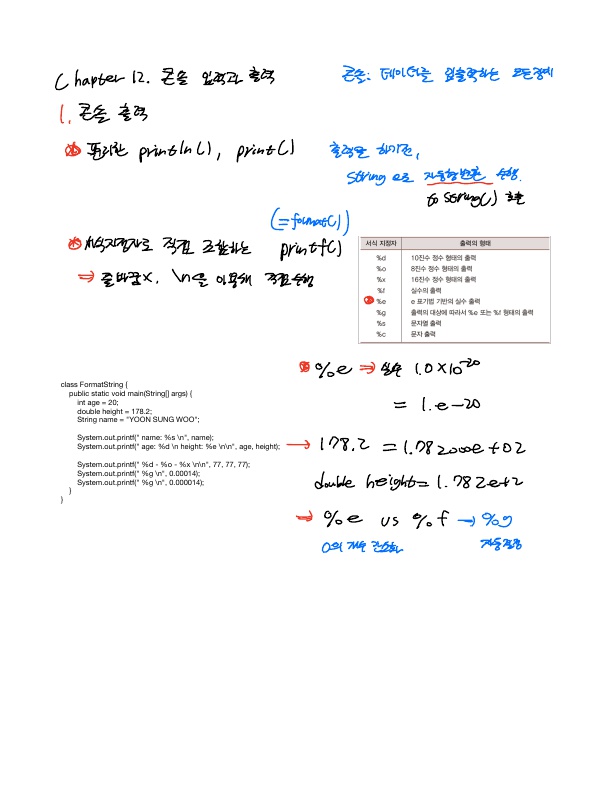 Chapter 12. 콘솔 입력과 출력
콘솔: 데이터를 입출력하는 모든 장치
1. 콘솔 출력
편리한 println(), print()
출력을 하기전,
String으로 자동형변환 수행.
toString() 호출
(=format())
서식지정자로 직접 조합하는 printf()
⇒ 줄바꿈x, \n을 이용해 직접 수행
서식 지정자 출력의 형태
%d 10진수 정수 형태의 출력
%o 8진수 정수 형태의 출력
%x 16진수 정수 형태의 출력
%f 실수의 출력
%e e 표기법 기반의 실수 출력
%g 출력의 대상에 따라서 %e 또는 %f 형태의 출력
%s 문자열 출력
%c 문자 출력
%e ⇒ 실수 1.0×10⁻²⁰
= 1.e-20
class FormatString {
public static void main(String[] args) {
int age = 20;
double height = 178.2;
String name = "YOON SUNG WOO";
System.out.printf(" name: %s \n", name);
System.out.printf(" age: %d \n height: %e \n\n", age, height);
System.out.printf(" %d - %o - %x \n\n", 77, 77, 77);
System.out.printf(" %g \n", 0.00014);
System.out.printf(" %g \n", 0.000014);
}
}
→ 178.2 = 1.782000e+02
double height = 1.782e+2
⇒ %e vs %f → %g
0의 개수 간소화
자동결정